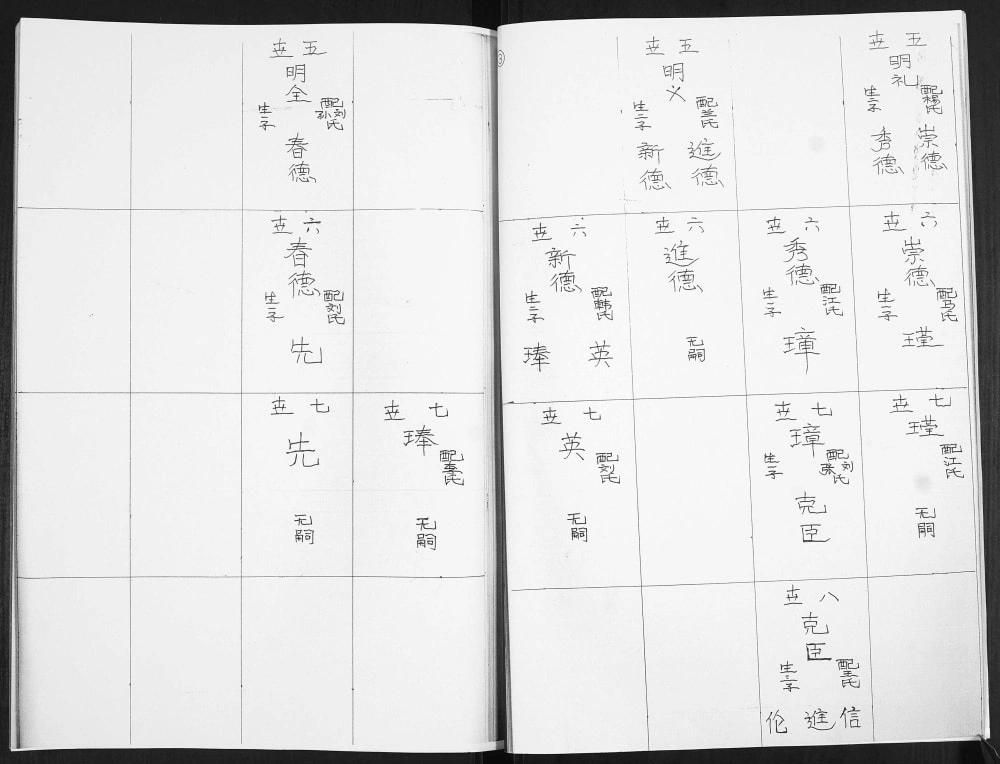 ③
五世
明礼
配杨氏
生二子
崇德
秀德
五世
明义
配兰氏
生二子
進德
新德
六世
崇德
配马氏
生一子
瑾
六世
秀德
配江氏
生一子
璋
六世
進德
无嗣
六世
新德
配韩氏
生二子
英
琫
七世
瑾
配江氏
无嗣
七世
璋
配刘氏
生一子
克臣
七世
英
配刘氏
无嗣
八世
克臣
配王氏
生三子
信
進
伦
五世
明全
配刘氏
孙
生一子
春德
六世
春德
配刘氏
生一子
先
七世
琫
配李氏
无嗣
七世
先
无嗣